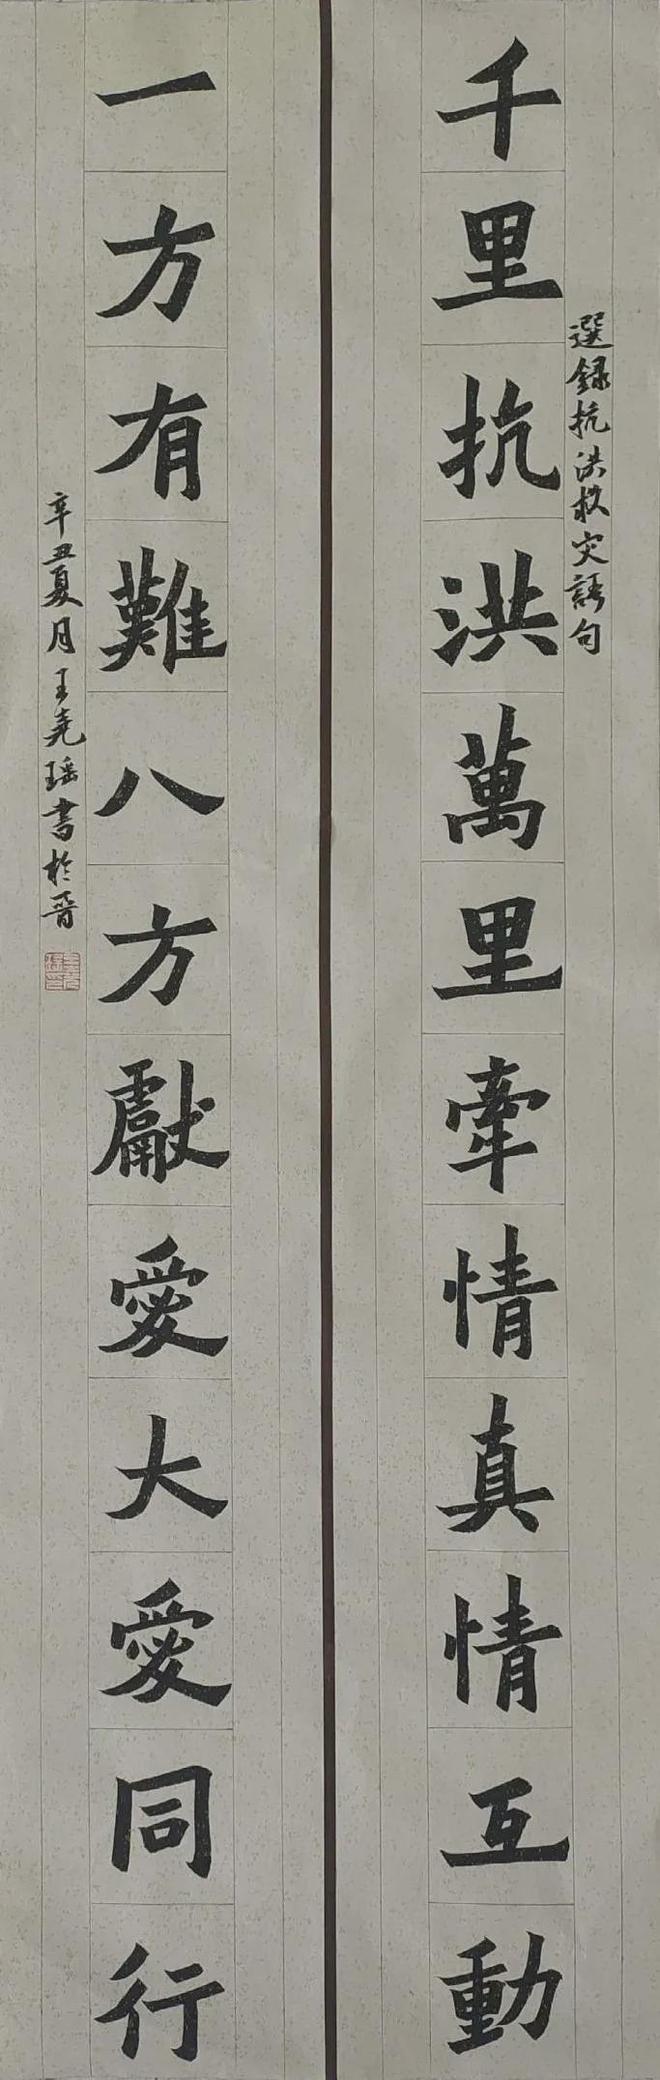 選録抗洪救灾語句
千里抗洪萬里牽情真情互動
一方有難八方獻愛大愛同行
辛丑夏月王堯瑶書於晋